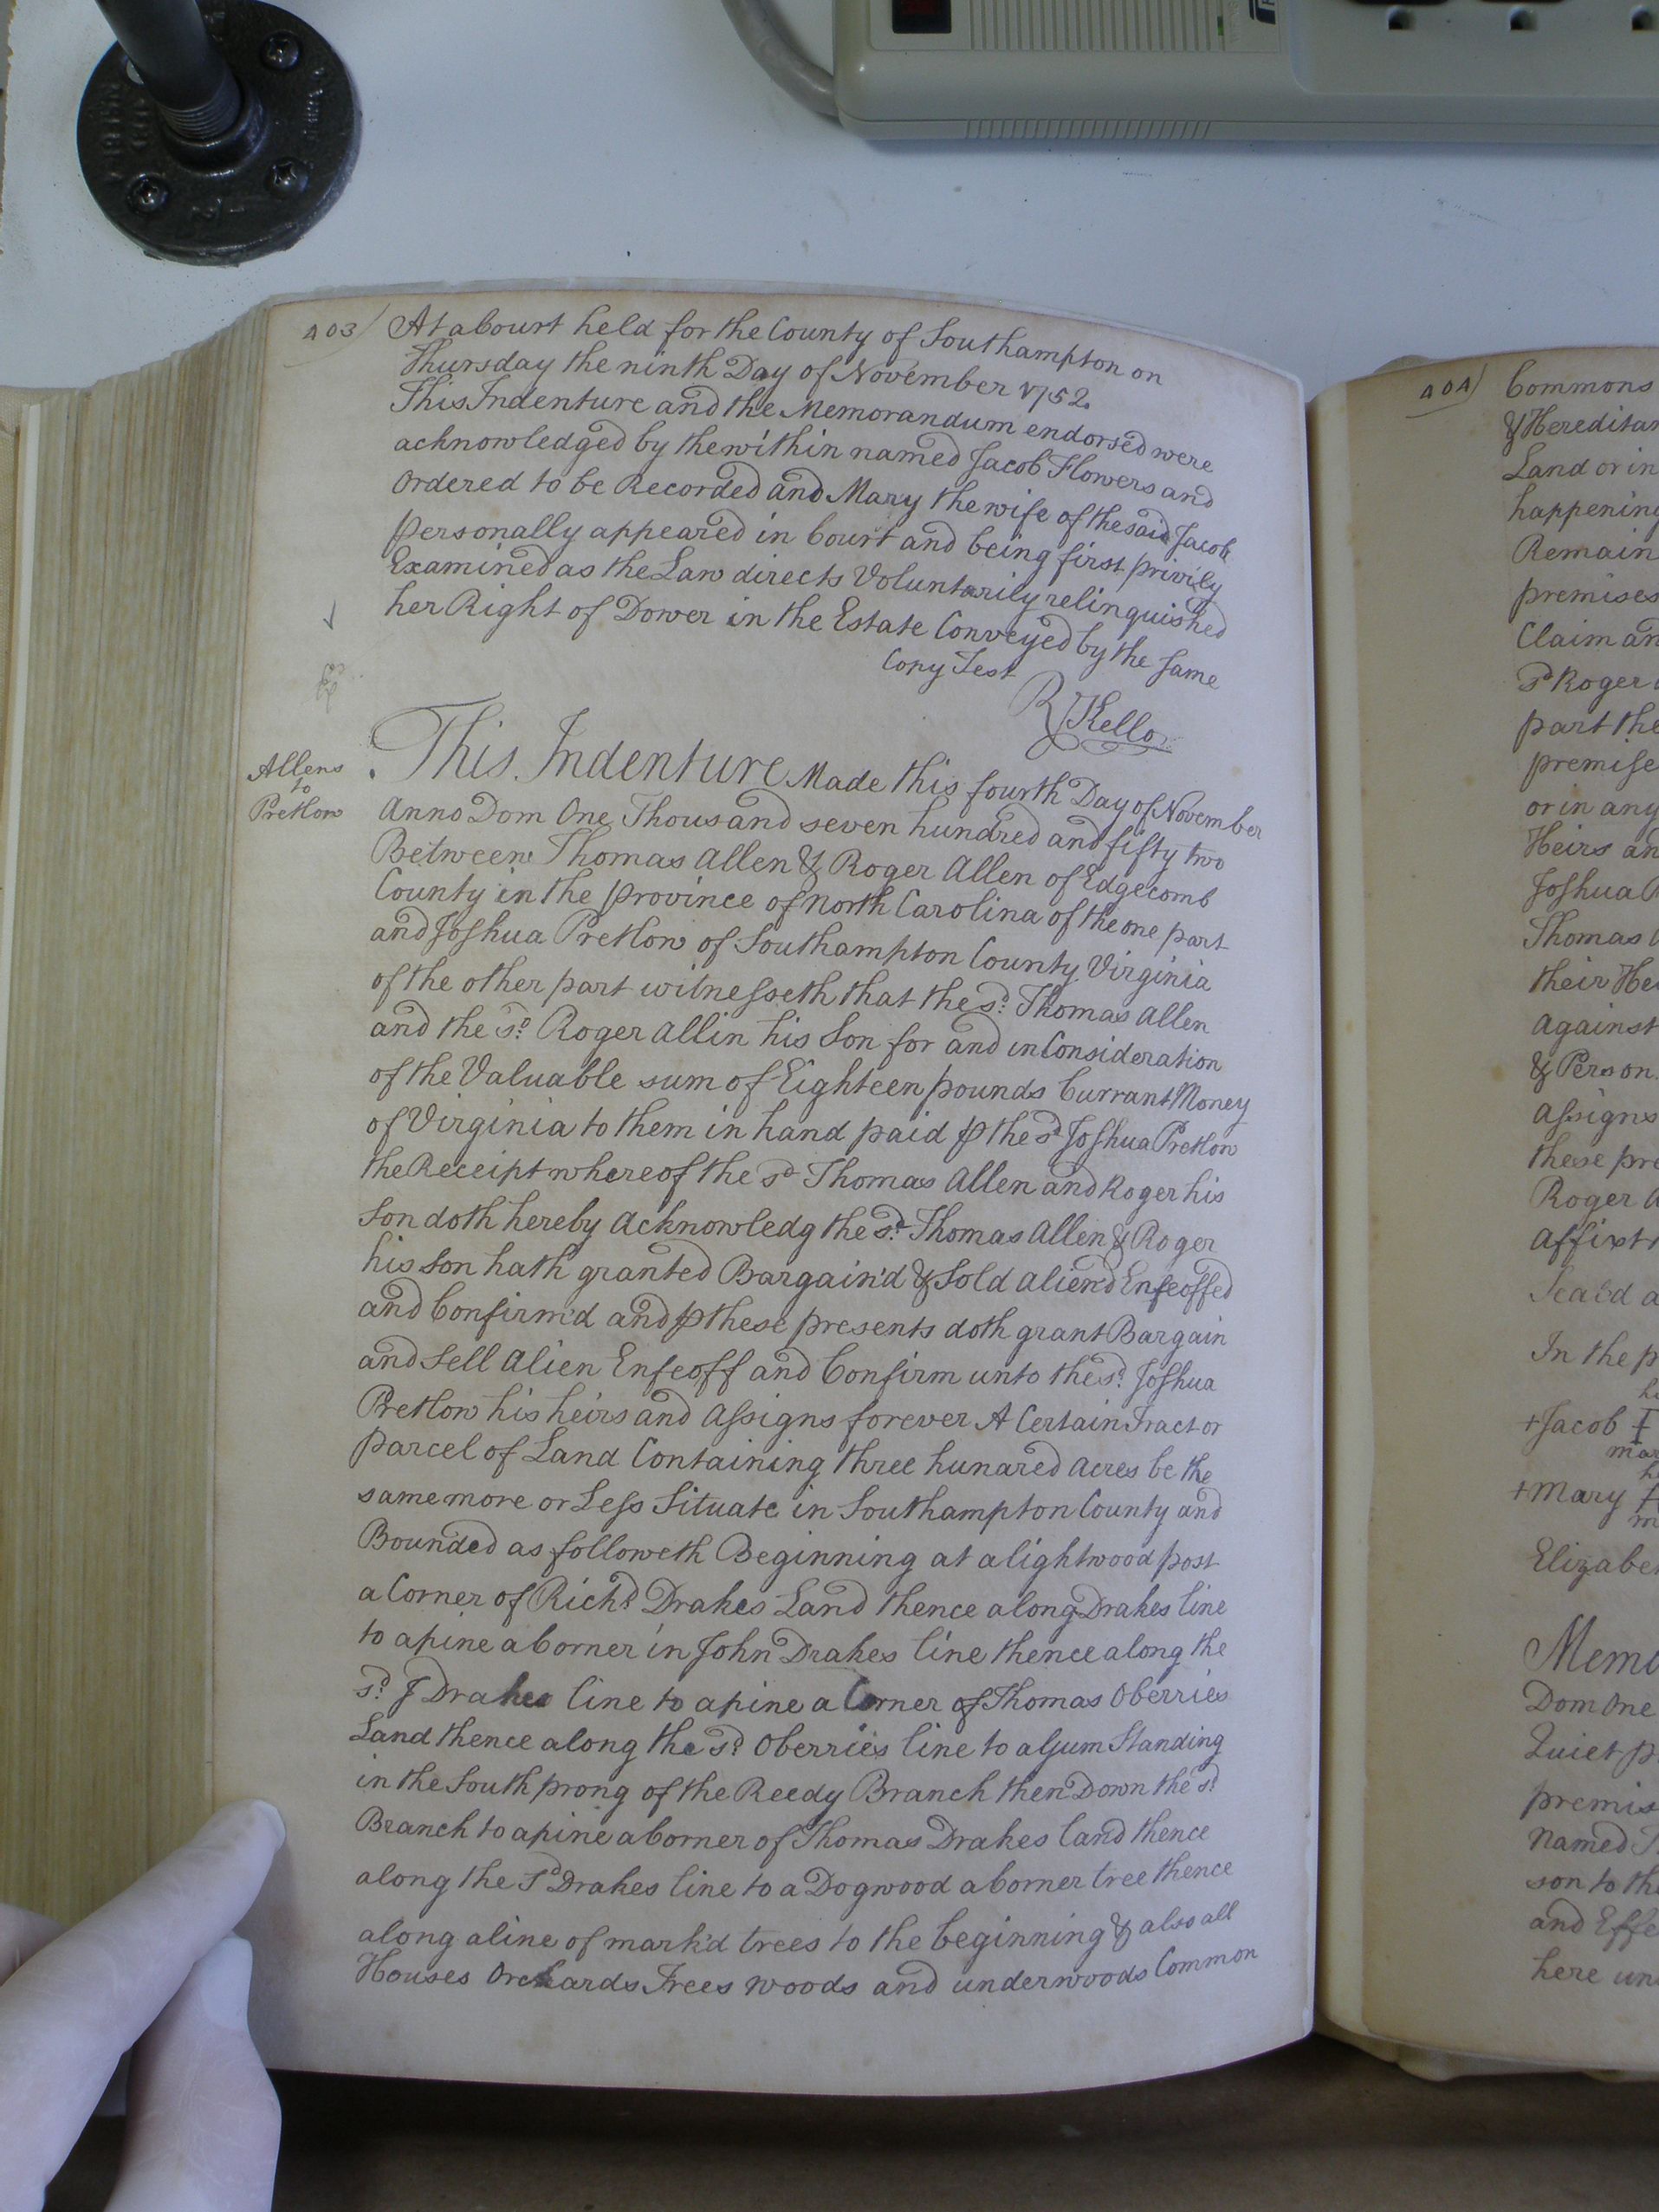 403
At a Court held for the County of Southampton on
Thursday the ninth Day of November 1752.
This Indenture and the Memorandum endorsed were
acknowledged by the within named Jacob Flowers and
Ordered to be Recorded and Mary the wife of the said Jacob
personally appeared in Court and being first privily
Examined as the Law directs Voluntarily relinquished
her Right of Dower in the Estate Conveyed by the same
Copy Test
R Kello
Allens
to
Pretlow
This Indenture Made this fourth Day of November
Anno Dom One Thousand seven hundred and fifty two
Between Thomas Allen & Roger Allen of Edgecomb
County in the province of North Carolina of the one part
and Joshua Pretlow of Southampton County Virginia
of the other part witnesseth that the sd. Thomas Allen
and the sd. Roger Allin his Son for and in Consideration
of the Valuable sum of Eighteen pounds Currant Money
of Virginia to them in hand paid ꝑ the sd Joshua Pretlow
the Receipt whereof the sd Thomas Allen and Roger his
Son doth hereby Acknowledg the sd. Thomas Allen & Roger
his Son hath granted Bargain'd & Sold alien'd Enfeoffed
and Confirm'd and ꝑ these presents doth grant Bargain
and Sell Alien Enfeoff and Confirm unto the sd. Joshua
Pretlow his heirs and Assigns forever A Certain Tract or
parcel of Land Containing three hundred Acres be the
same more or Less Situate in Southampton County and
Bounded as followeth Beginning at a lightwood post
a Corner of Richd. Drakes Land thence along Drakes line
to a pine a Corner in John Drakes line thence along the
sd. J Drakes line to a pine a Corner of Thomas Oberries
Land thence along the sd. Oberries line to a Gum Standing
in the South prong of the Reedy Branch then Down the sd.
Branch to a pine a Corner of Thomas Drakes land thence
along the sd Drakes line to a Dogwood a Corner tree thence
along a line of mark'd trees to the beginning & also all
Houses Orchards Trees woods and underwoods Common
404
Commons
& Hereditar
Land or in
happening
Remain
premises
Claim an
sd Roger
part the
premise
or in any
Heirs an
Joshua P
Thomas
their Hei
against
& Person
Assigns
these pre
Roger A
affixt
Seal'd a
In the p
+Jacob
mar
+Mary
m
Elizabe
Memo
Dom One
Quiet p
premis
Named
son to the
and Effe
here un